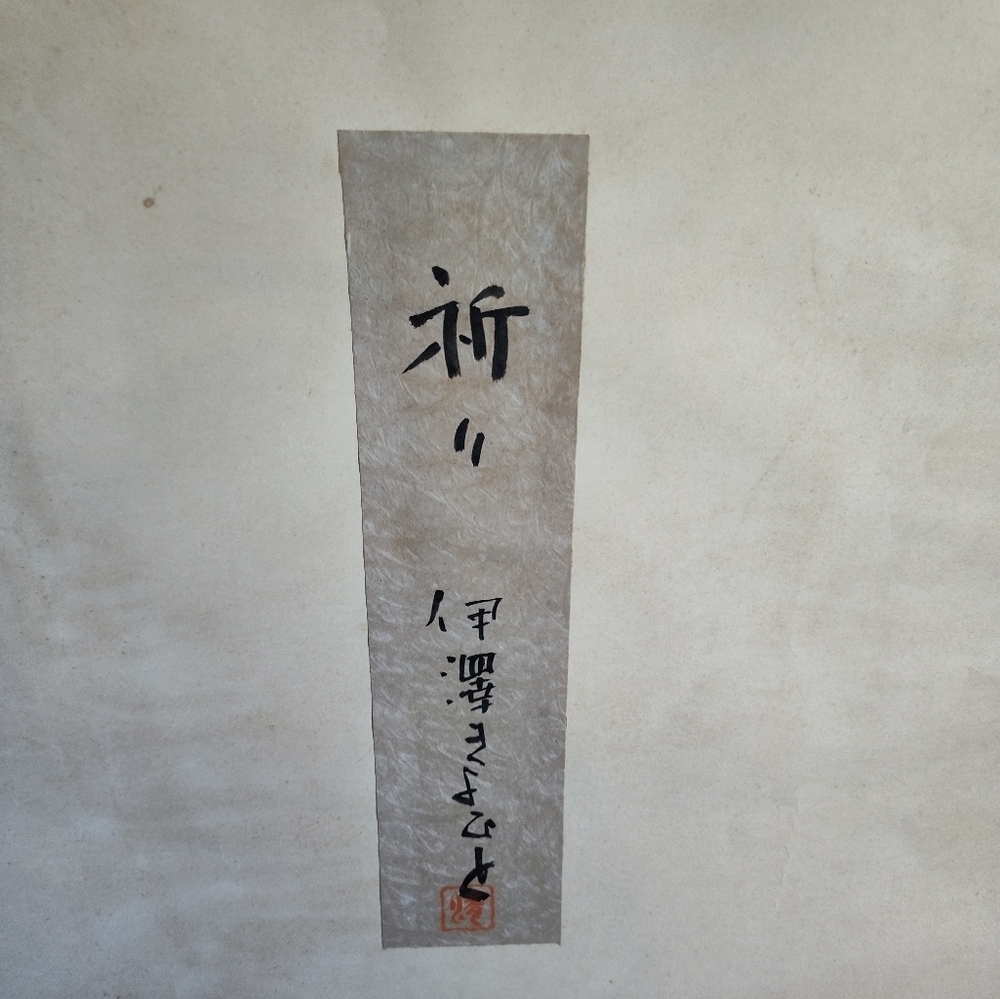 祈り
伊澤きよひと